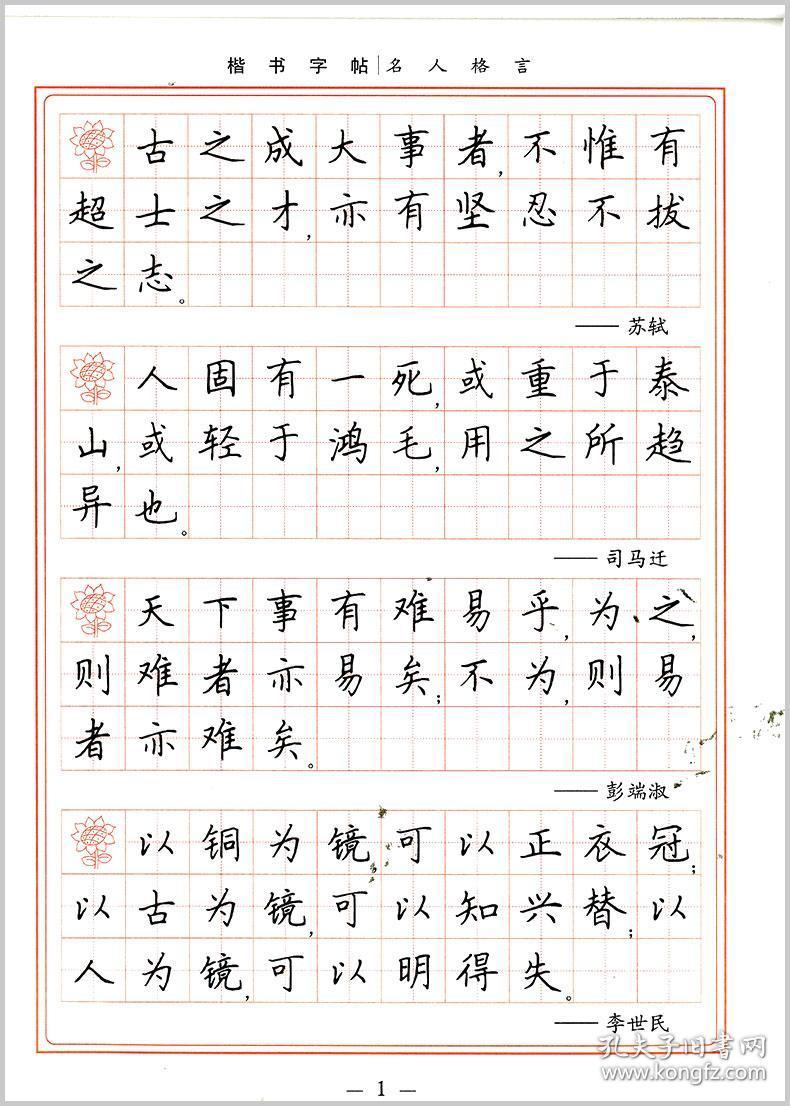 楷书字帖|名人格言
古之成大事者,不惟有
超士之才,亦有坚忍不拔
之志。
——苏轼
人固有一死,或重于泰
山,或轻于鸿毛,用之所趋
异也。
——司马迁
天下事有难易乎,为之,
则难者亦易矣;不为,则易
者亦难矣。
——彭端淑
以铜为镜可以正衣冠;
以古为镜,可以知兴替;以
人为镜,可以明得失。
——李世民
— 1 —
孔夫子旧书网
www.kongfz.com